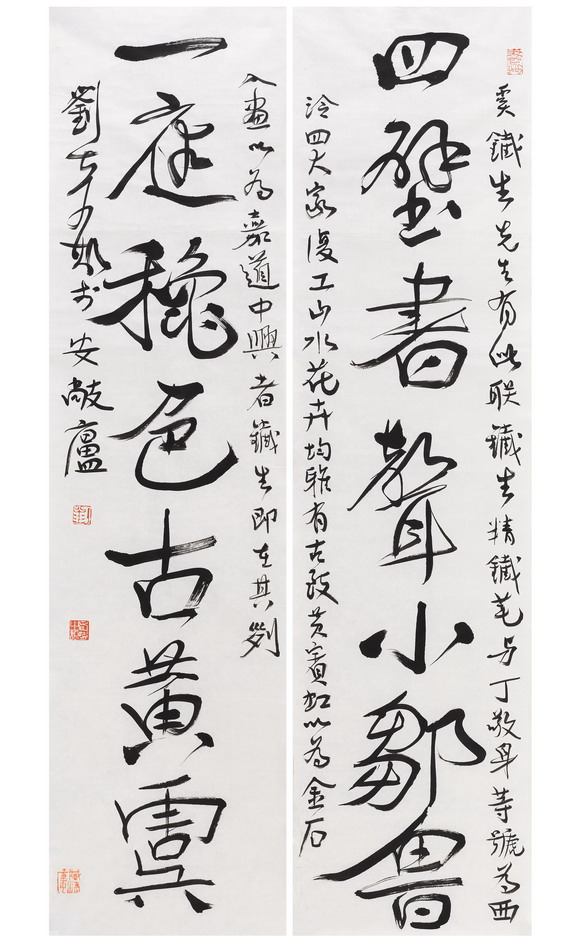 奚鐵生先生有此联鐵生精鐵笔与丁敬身等號為西
四壁書聲小鄒魯
泠四大家復工山水花卉均雅有古致黄賓虹以為金石
入畫以為嘉道中興者鐵生即在其列
一庭穐色古黃虞
劉 於安敞廬